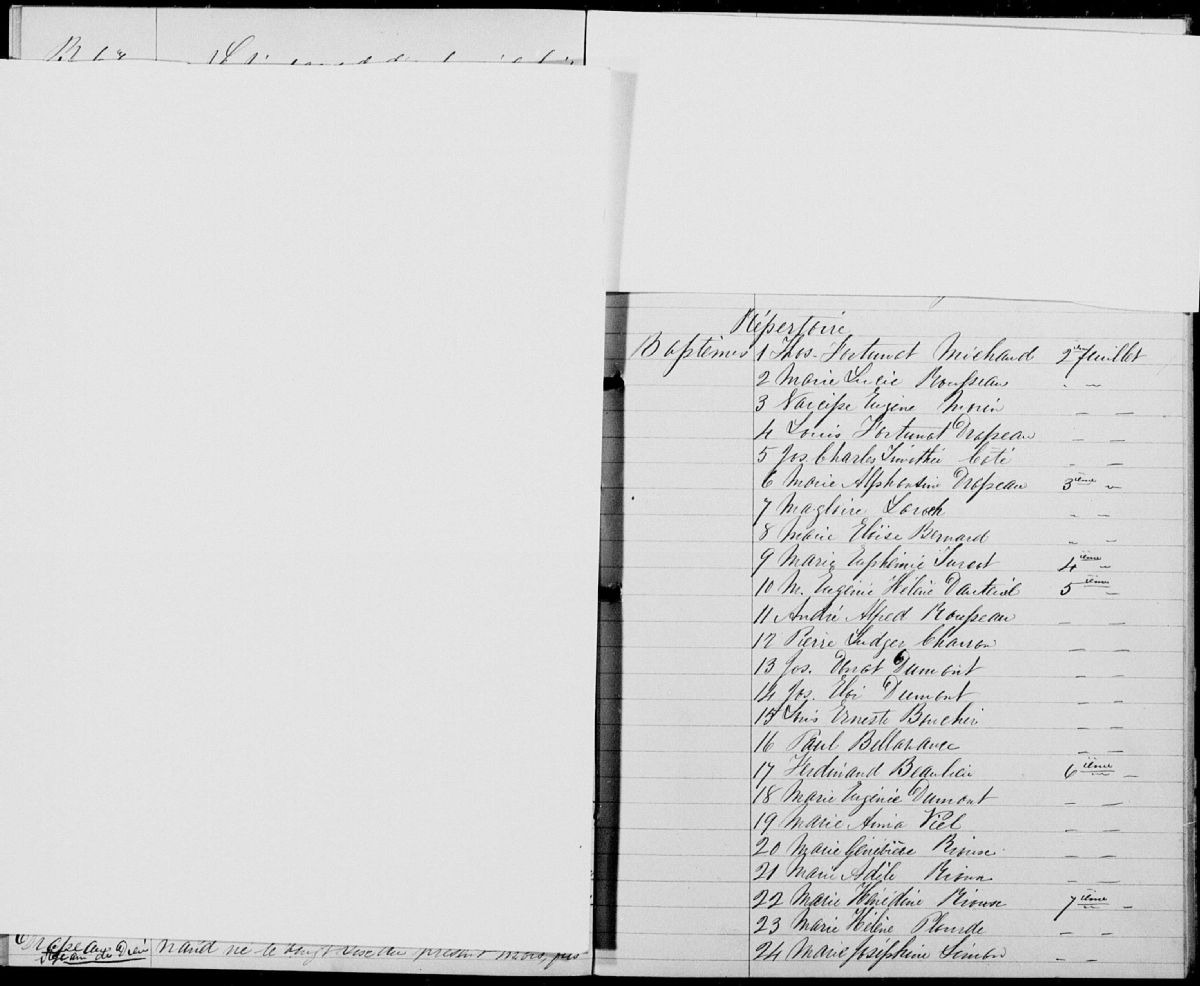 Répertoire
Baptêmes 1 Thos. Fortunat Michaud 2ième feuillet
2 Marie Lucie Rousseau " "
3 Narcisse Eugène Morin — —
4 Louis Fortunat Drapeau — —
5 Jos. Charles Timothée Coté — —
6 Marie Alphonsine Drapeau 3ième "
7 Magloire " "
8 Marie Eloïse Bernard " "
9 Marie Euphémie Turcot 4ième "
10 M. Eugénie Hélène Dauteuil 5ième "
11 André Alfred Rousseau — —
12 Pierre Ludger Charron — —
13 Jos. Donat Dumont — —
14 Jos. Eloi Dumont — —
15 Louis Erneste Boucher — —
16 Paul Bellavance — —
17 Ferdinand Beaulieu 6ième " —
18 Marie Eugénie Dumont — —
19 Marie Anna Viel — —
20 Marie Rioux — —
21 Marie Adèle Rioux — —
22 Marie Rioux 7ième " —
23 Marie Hélène Plourde — —
24 Marie Joséphine Simon — —
Drapeau
nand né le du présent mois,